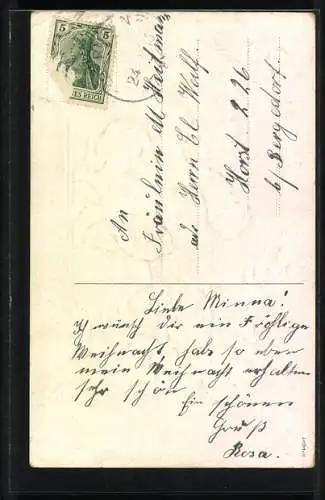 5
ES REICH
An
Fräulein M
Herrn
Horst 226
b/ Bergedorf.
Liebe Minna!
Ich wünsch dir ein Fröhliges
Weihnacht, hab so eben
mein Weihnacht erhalten
sehr schön
Ein schönen
Gruß
Rosa.